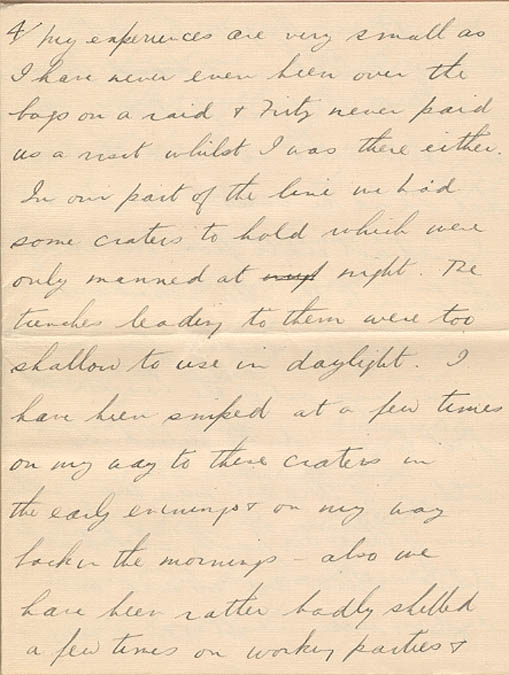 4/ My experiences are very small as
I have never even been over the
bags on a raid & Fritz never paid
us a visit whilst I was there either.
In our part of the line we had
some craters to hold which were
only manned at night. The
trenches leading to them were too
shallow to use in daylight. I
have been sniped at a few times
on my way to these craters in
the early evenings & on my way
back in the mornings – also we
have been rather badly shelled
a few times on working parties &